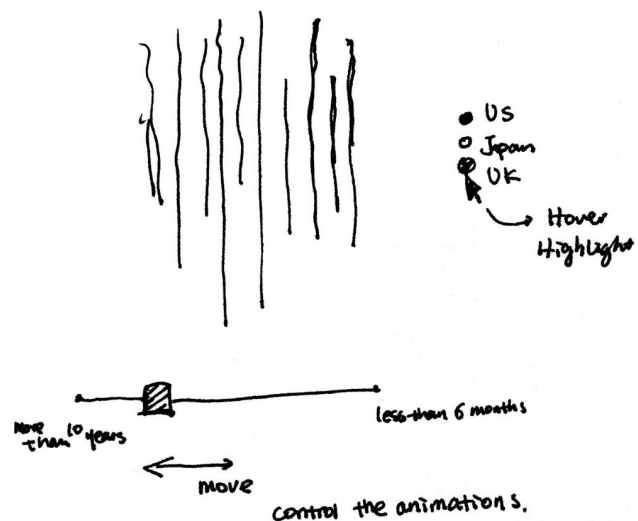 US
Japan
UK
Hover
Highlight
More than 10 years
less than 6 months
move
control the animations.